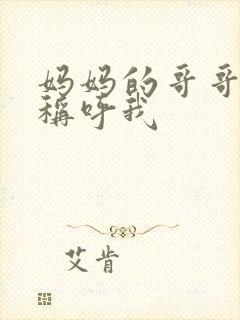 妈妈的哥哥
稱呼我
艾肯